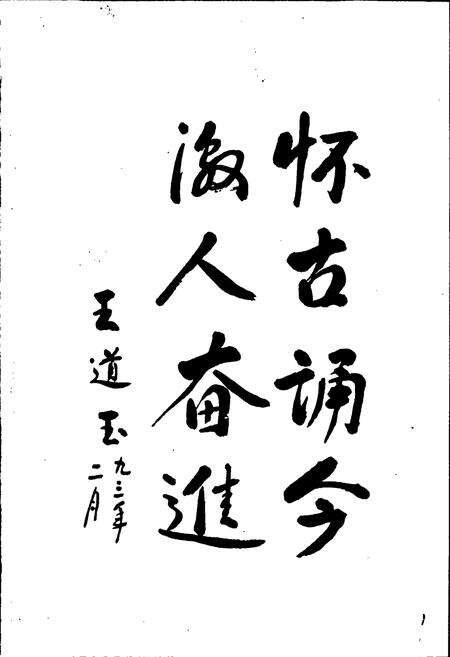 怀古诵今
激人奋進
王道玉
九三年
二月
1